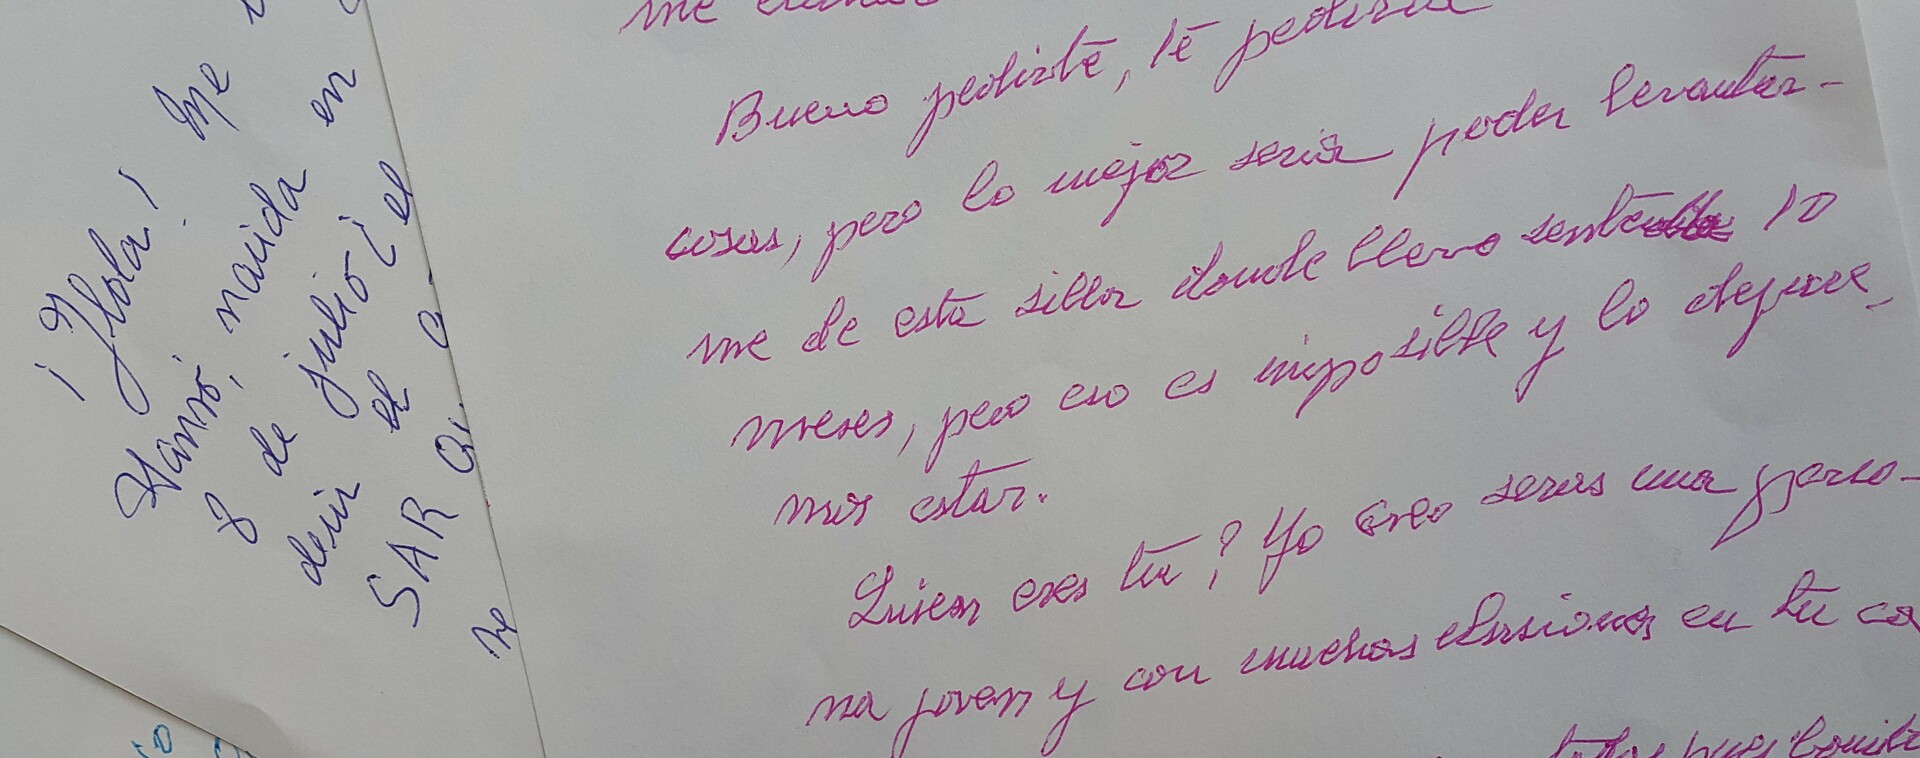 ¡Hola! Me
nacida en
8 de julio ¿el
decir el
SAR
me
Bueno pedirte, te pediria
cosas, pero lo mejor seria poder levantar-
me de esta silla donde llevo 10
meses, pero eso es imposible y lo dejare-
mos estar.
Quien eres tu? Yo creo seras una perso-
na joven y con muchas elusiones en tu ca